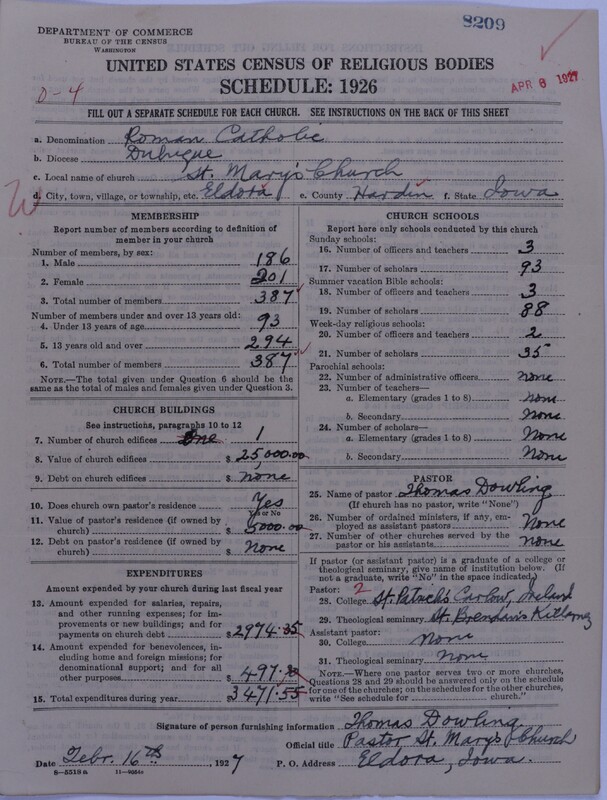 8209
DEPARTMENT OF COMMERCE
BUREAU OF THE CENSUS
WASHINGTON
UNITED STATES CENSUS OF RELIGIOUS BODIES
SCHEDULE: 1926
0-4
APR 8 1927
FILL OUT A SEPARATE SCHEDULE FOR EACH CHURCH. SEE INSTRUCTIONS ON THE BACK OF THIS SHEET
a. Denomination Roman Catholic
b. Diocese Dubuque
c. Local name of church St. Mary's Church
d. City, town, village, or township, etc. Eldora e. County Hardin f. State Iowa
MEMBERSHIP
Report number of members according to definition of
member in your church
Number of members, by sex:
1. Male 186
2. Female 201
3. Total number of members 387
Number of members under and over 13 years old:
4. Under 13 years of age 93
5. 13 years old and over 294
6. Total number of members 387
NOTE.—The total given under Question 6 should be
the same as the total of males and females given under Question 3.
CHURCH BUILDINGS
See instructions, paragraphs 10 to 12
7. Number of church edifices One 1
8. Value of church edifices $25,000.00
9. Debt on church edifices $ None
10. Does church own pastor's residence Yes
Yes or No
11. Value of pastor's residence (if owned by
church) $ 5000.00
12. Debt on pastor's residence (if owned by
church) $ None
EXPENDITURES
Amount expended by your church during last fiscal year
13. Amount expended for salaries, repairs,
and other running expenses; for im-
provements or new buildings; and for
payments on church debt $2974.35
14. Amount expended for benevolences, in-
cluding home and foreign missions; for
denominational support; and for all
other purposes $ 497.20
15. Total expenditures during year 3471.55
CHURCH SCHOOLS
Report here only schools conducted by this church
Sunday schools:
16. Number of officers and teachers 3
17. Number of scholars 93
Summer vacation Bible schools:
18. Number of officers and teachers 3
19. Number of scholars 88
Week-day religious schools:
20. Number of officers and teachers 2
21. Number of scholars 35
Parochial schools:
22. Number of administrative officers none
23. Number of teachers—
a. Elementary (grades 1 to 8) none
b. Secondary None
24. Number of scholars—
a. Elementary (grades 1 to 8) None
b. Secondary None
PASTOR
25. Name of pastor Thomas Dowling
(If church has no pastor, write "None")
26. Number of ordained ministers, if any, em-
ployed as assistant pastors None
27. Number of other churches served by the
pastor or his assistants None
If pastor (or assistant pastor) is a graduate of a college or
theological seminary, give name of institution below. (If
not a graduate, write "No" in the space indicated)
Pastor: 2
28. College St. Patrick's Carlow, Ireland
29. Theological seminary St. Brendan's Killarney
Assistant pastor:
30. College None
31. Theological seminary None
NOTE.—Where one pastor serves two or more churches,
Questions 28 and 29 should be answered only on the schedule
for one of the churches; on the schedules for the other churches,
write "See schedule for church."
Signature of person furnishing information Thomas Dowling
Official title Pastor St. Mary's Church
Date Febr. 16th, 1927 P. O. Address Eldora, Iowa.